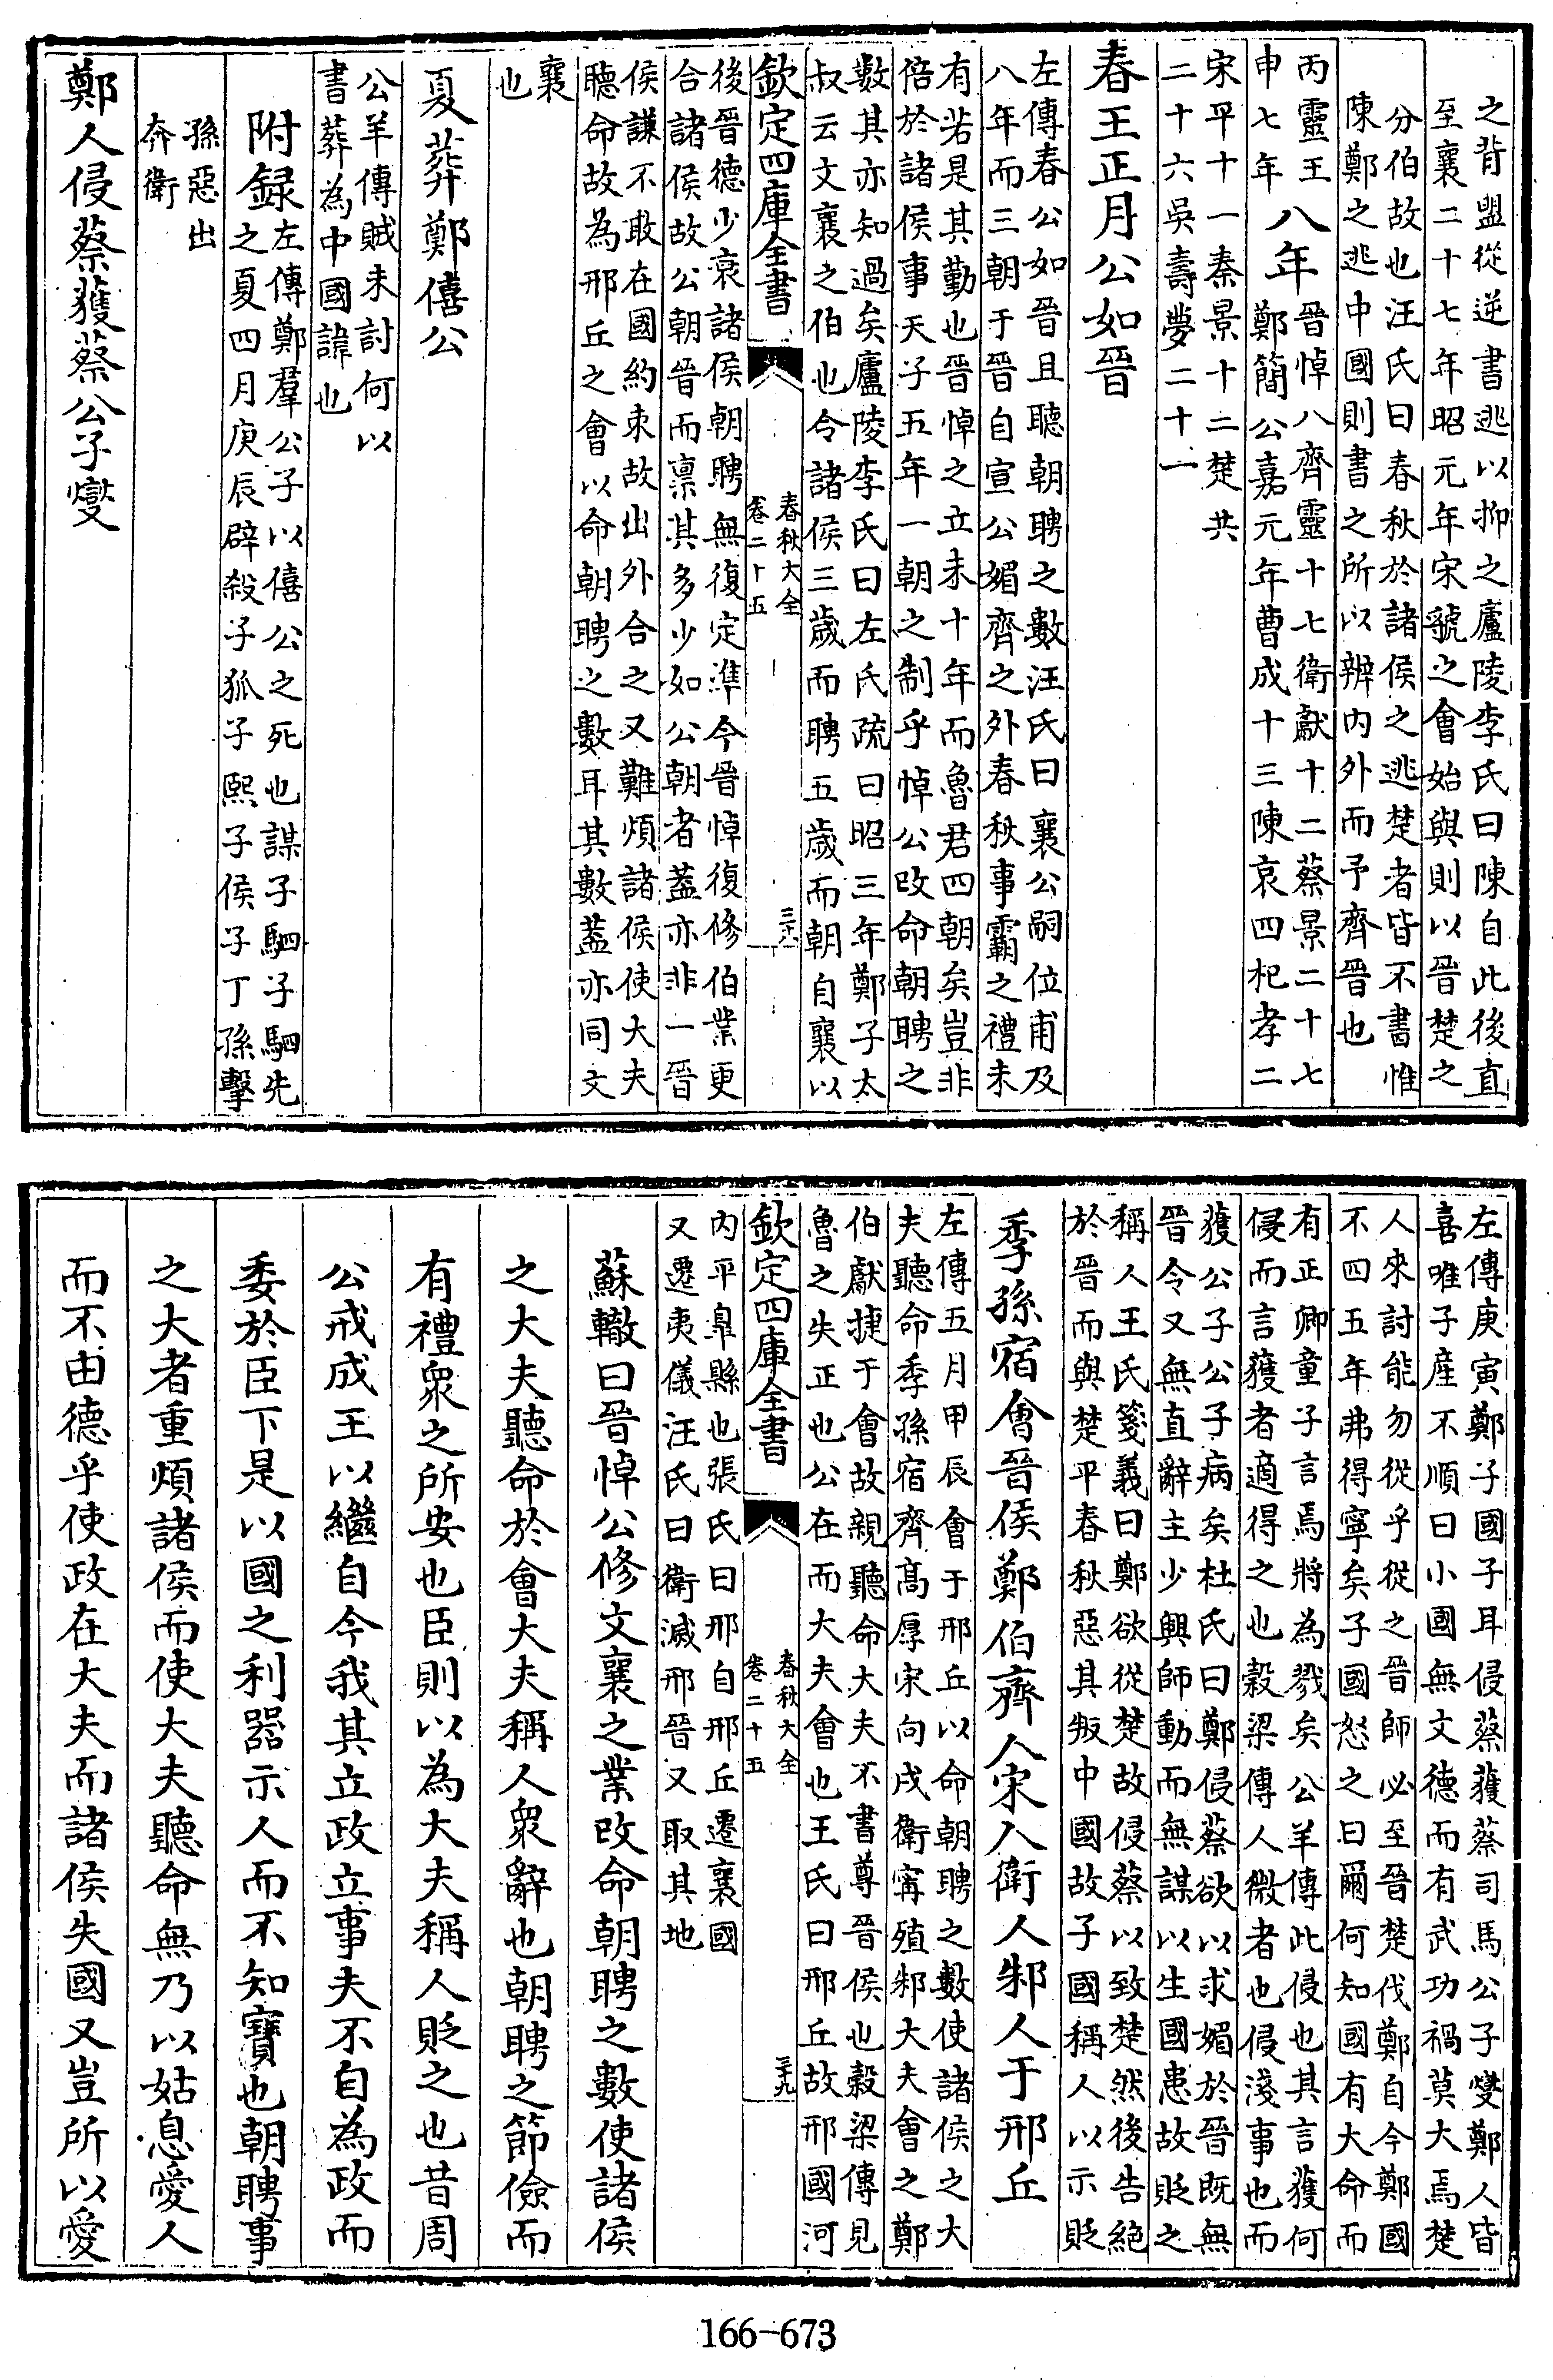 之背盟從逆書逃以抑之廬陵李氏曰陳自此後直
至襄二十七年昭元年宋虢之會始與則以晉楚之
分伯故也汪氏曰春秋於諸侯之逃楚者皆不書惟
陳鄭之逃中國則書之所以辨內外而予齊晉也
丙靈王
申七年
八年
晉悼八齊靈十七衛獻十二蔡景二十七
鄭簡公嘉元年曹成十三陳哀四杞孝二
宋平十一秦景十二楚共
二十六吳壽夢二十一
春王正月公如晉
左傳春公如晉且聽朝聘之數汪氏曰襄公嗣位甫及
八年而三朝于晉自宣公媚齊之外春秋事霸之禮未
有若是其勤也晉悼之立未十年而魯君四朝矣豈非
倍於諸侯事天子五年一朝之制乎悼公改命朝聘之
數其亦知過矣廬陵李氏曰左氏疏曰昭三年鄭子太
叔云文襄之伯也令諸侯三歲而聘五歲而朝自襄以
欽定四庫全書
春秋大全
卷二十五
三十八
後晉德少衰諸侯朝聘無復定準今晉悼復修伯業更
合諸侯故公朝晉而稟其多少如公朝者蓋亦非一晉
侯謙不敢在國約束故出外合之又難煩諸侯使大夫
聽命故為邢丘之會以命朝聘之數耳其數蓋亦同文
襄
也
夏葬鄭僖公
公羊傳賊未討何以
書葬為中國諱也
附録
左傳鄭羣公子以僖公之死也謀子駟子駟先
之夏四月庚辰辟殺子狐子熙子侯子丁孫擊
孫惡出
奔衛
鄭人侵蔡獲蔡公子燮
左傳庚寅鄭子國子耳侵蔡獲蔡司馬公子燮鄭人皆
喜唯子產不順曰小國無文德而有武功禍莫大焉楚
人來討能勿從乎從之晉師必至晉楚伐鄭自今鄭國
不四五年弗得寧矣子國怒之曰爾何知國有大命而
有正卿童子言焉將為戮矣公羊傳此侵也其言獲何
侵而言獲者適得之也穀梁傳人微者也侵淺事也而
獲公子公子病矣杜氏曰鄭侵蔡欲以求媚於晉既無
晉令又無直辭主少興師動而無謀以生國患故貶之
稱人王氏箋義曰鄭欲從楚故侵蔡以致楚然後告絕
於晉而與楚平春秋惡其叛中國故子國稱人以示貶
季孫宿會晉侯鄭伯齊人宋人衛人邾人于邢丘
左傳五月甲辰會于邢丘以命朝聘之數使諸侯之大
夫聽命季孫宿齊高厚宋向戌衛甯殖邾大夫會之鄭
伯獻捷于會故親聽命大夫不書尊晉侯也穀梁傳見
魯之失正也公在而大夫會也王氏曰邢丘故邢國河
欽定四庫全書
春秋大全
卷二十五
三十九
內平臯縣也張氏曰邢自邢丘遷襄國
又遷夷儀汪氏曰衛滅邢晉又取其地
蘇轍曰晉悼公修文襄之業改命朝聘之數使諸侯
之大夫聽命於會大夫稱人衆辭也朝聘之節儉而
有禮衆之所安也臣則以為大夫稱人貶之也昔周
公戒成王以繼自今我其立政立事夫不自為政而
委於臣下是以國之利器示人而不知寶也朝聘事
之大者重煩諸侯而使大夫聽命無乃以姑息愛人
而不由德乎使政在大夫而諸侯失國又豈所以愛
166-673